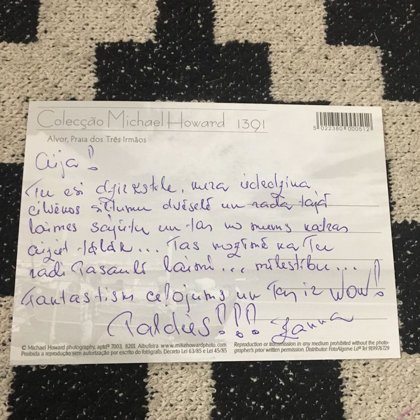 Colecção Michael Howard 1391
Alvor, Praia dos Três Irmãos
5022380000512
Aija!
Tu esi dzirkstele, kura iededzina
cilvēkos siltumu dvēselē un rada tajā
laimes sajūtu un tas no mums katras
aiziet tālāk... Tas nozīmē ka Tu
radi Pasaulē laimi... mīlestību...
Fantastisks ceļojums un Tas ir WOW!
Paldies!!! Žanna
© Michael Howard photography, 8201 Albufeira www.mikehowardphoto.com
Proibida a reprodução sem autorização por escrito do fotógrafo. Decreto Lei 63/85 e Lei 45/85
Reproduction or transmission in any medium prohibited without the photo-
grapher's prior written permission. Distributor: FotoAlgarve